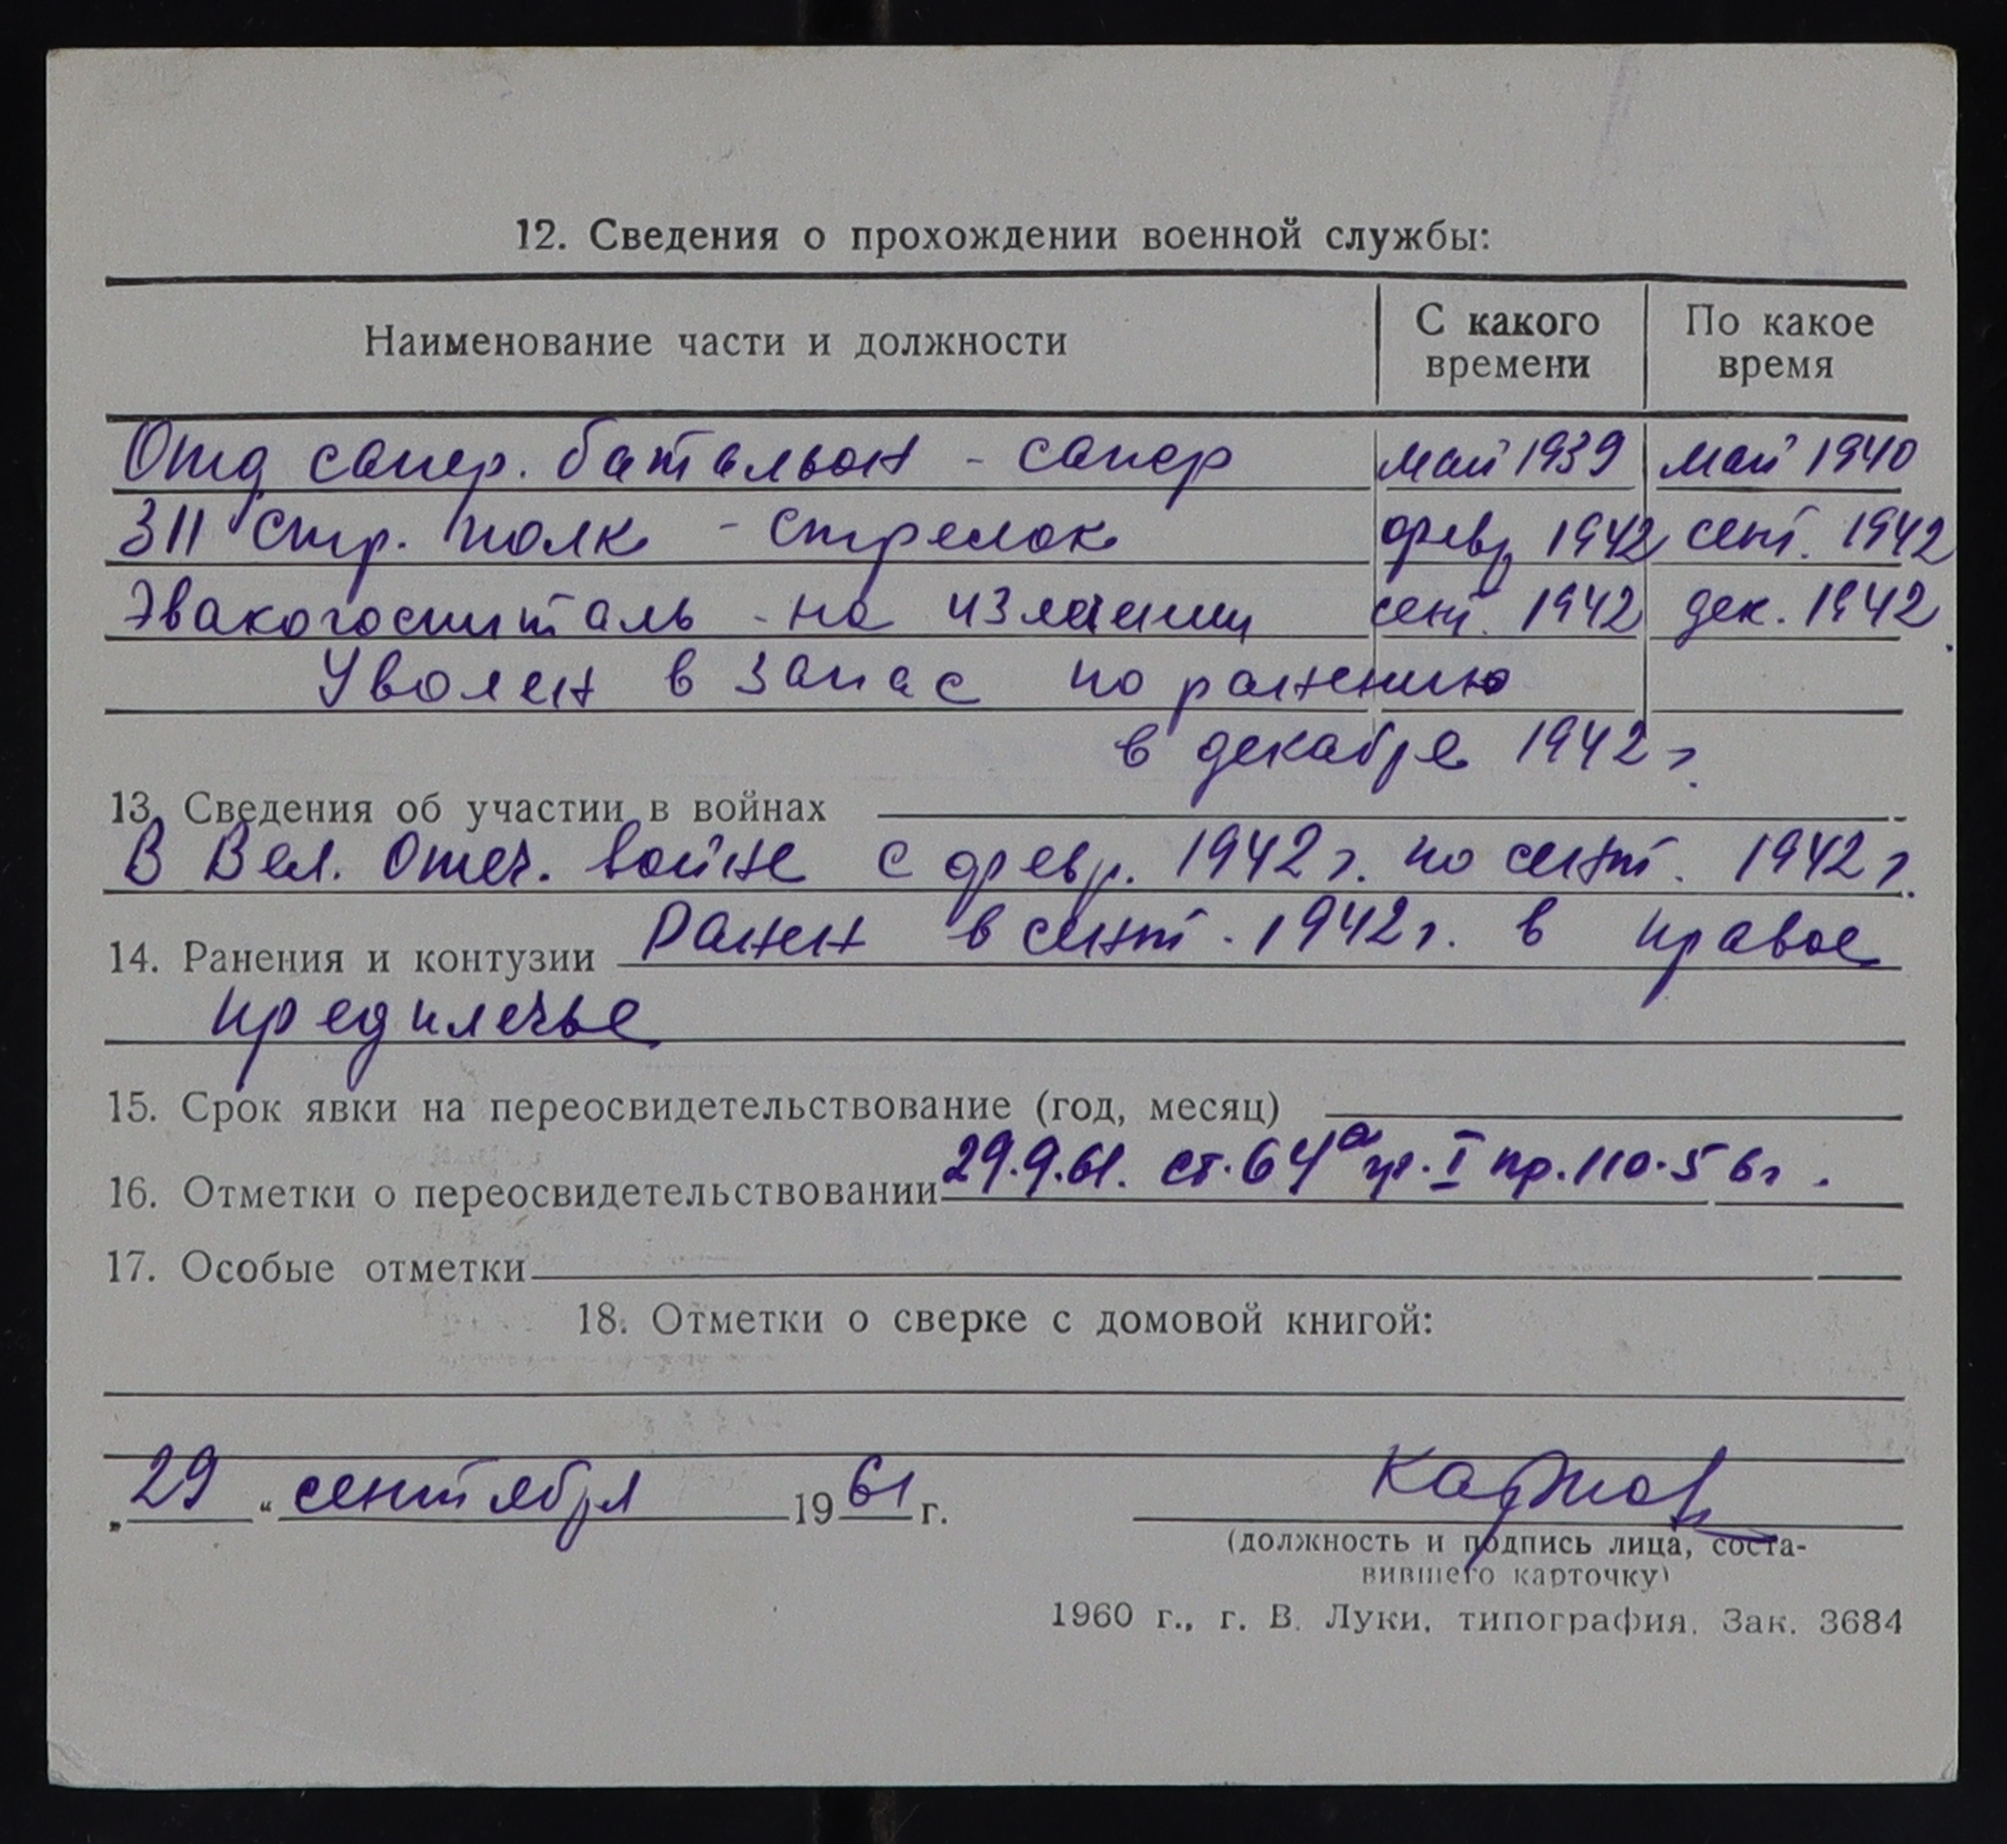 12. Сведения о прохождении военной службы:
Наименование части и должности
С какого времени
По какое время
Отд сапер. батальон - сапер май 1939 май 1940
311 стр. полк - стрелок февр 1942 сент. 1942
Эвакогоспиталь - на излечении сент. 1942 дек. 1942.
Уволен в запас по ранению
в декабре 1942 г.
13. Сведения об участии в войнах
В Вел. Отеч. войне с февр. 1942 г. по сент. 1942 г.
14. Ранения и контузии Ранен в сент. 1942 г. в правое
предплечье
15. Срок явки на переосвидетельствование (год, месяц)
16. Отметки о переосвидетельствовании 29.9.61. ст. 64а гр. I пр. 110-56г.
17. Особые отметки
18. Отметки о сверке с домовой книгой:
„29“ сентября 1961 г.
(должность и подпись лица, соста-
вившего карточку)
1960 г., г. В. Луки, типография. Зак. 3684